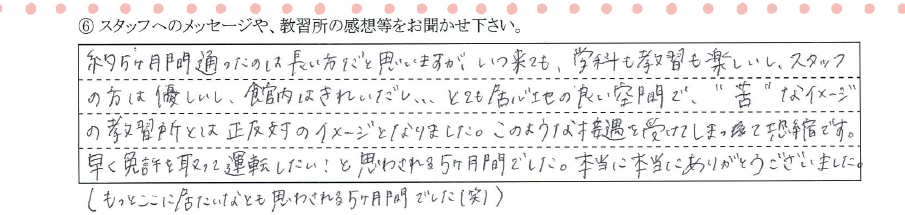 ⑥ スタッフへのメッセージや、教習所の感想等をお聞かせ下さい。
約5ヶ月間通ったのは長い方だと思いますが、いつ来ても、学科も教習も楽しいし、スタッフ
の方は優しいし、館内はきれいだし、、、とても居心地の良い空間で、"苦"なイメージ
の教習所とは正反対のイメージとなりました。このような接遇を受けてしまって恐縮です。
早く免許を取って運転したい!と思わされる5ヶ月間でした。本当に本当にありがとうございました。
(もっとここに居たいなとも思わされる5ヶ月間でした(笑))